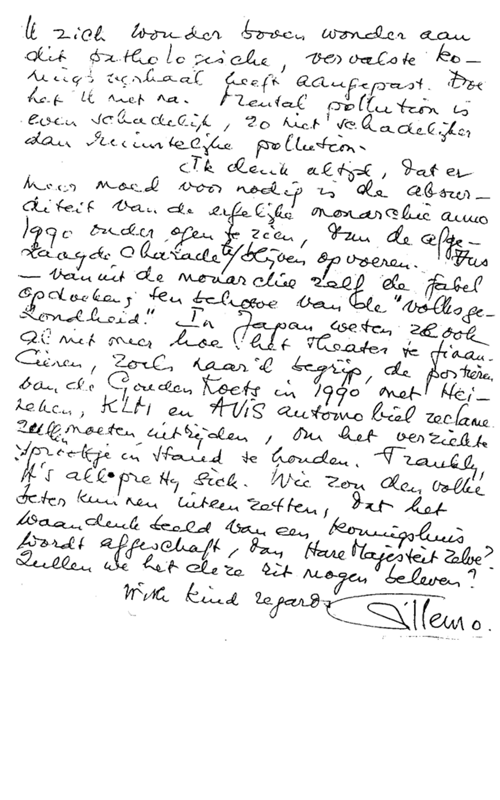 U zich wonder boven wonder aan
dit pathologische, vervalste ko-
nings verhaal heeft aangepast. Doe
het U niet na. Mental pollution is
even schadelijk, zo niet schadelijker
dan ruimtelijke pollution.
Ik denk altijd, dat er
meer moed voor nodig is de absur-
diteit van de erfelijke monarchie anno
1990 onder ogen te zien, dan de afge-
zaagde charade te blijven opvoeren. Dus
- vanuit de monarchie zelf de fabel
opdoeken, ten behoeve van de "volksge-
zondheid." In Japan weten ze ook
al niet meer hoe het theater te finan-
cieren, zoals naar 'k begrijp, de portieren
van de Gouden Koets in 1990 met Hei-
neken, KLM en AVIS automobiel reclame
zullen moeten uitrijden, om het verziekte
sprookje in stand te houden. Frankly,
it's all pretty sick. Wie zou den volke
beter kunnen uiteen zetten, dat het
waandenkbeeld van een koningshuis
wordt afgeschaft, dan Hare Majesteit zelve?
Zullen we het deze rit mogen beleven?
With kind regards
Willem O.